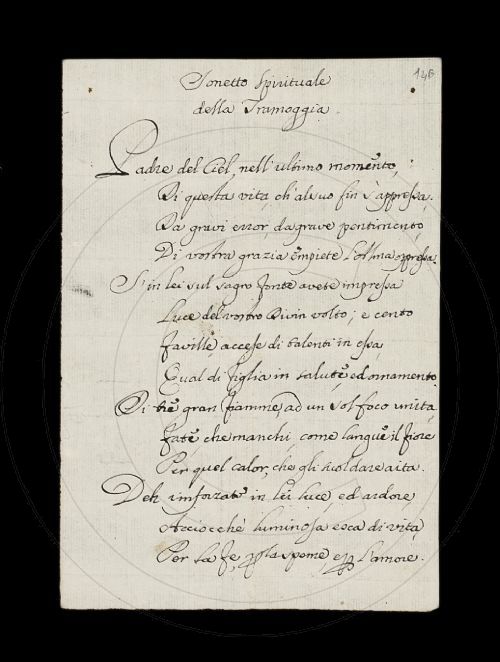 146
Sonetto Spirituale
della Tramoggia
Padre del Ciel, nell'ultimo momento,
Di questa vita, ch'al suo fin s'appressa,
Da gravi error da grave pentimento,
Di vostra grazia empiete l'alma oppressa.
Si in lei sul sagro fonte avete impressa
Luce del vostro Divin volto; e cento
Faville accese di talenti in essa
Qual di figlia in salute, ed ornamento
Di tre gran fiamme, ad un sol foco unita,
Fate, che manchi, come langue il fiore
Per quel calor, che gli suol dare aita.
Deh rinforzate in lei luce, ed ardore,
Acciocchè luminosa esca di vita,
Per la fe, p la speme e p l'amore.